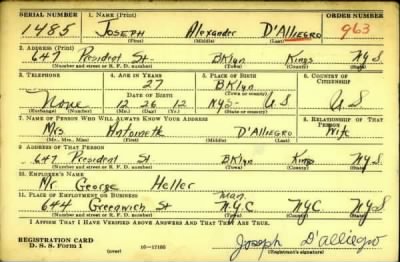 SERIAL NUMBER 1. NAME (Print) ORDER NUMBER
1485 JOSEPH Alexander D'ALLEGRO 963
(First) (Middle) (Last)
2. ADDRESS (Print)
647 President St. BKlyn Kings N.Y.S
(Number and street or R. F. D. number) (Town) (County) (State)
3. TELEPHONE 4. AGE IN YEARS 5. PLACE OF BIRTH 6. COUNTRY OF CITIZENSHIP
27 BKlyn
DATE OF BIRTH (Town or county)
None 12 26 12 NYS U.S U.S
(Exchange) (Number) (Mo.) (Day) (Yr.) (State or country)
7. NAME OF PERSON WHO WILL ALWAYS KNOW YOUR ADDRESS 8. RELATIONSHIP OF THAT PERSON
Mrs Antoineth D'ALLEGRO Wife
(Mr., Mrs., Miss) (First) (Middle) (Last)
9. ADDRESS OF THAT PERSON
647 President St BKlyn Kings N.Y.S
(Number and street or R. F. D. number) (Town) (County) (State)
10. EMPLOYER'S NAME
Mr. George Heller
11. PLACE OF EMPLOYMENT OR BUSINESS
Man.
644 Greenwich St N.Y.C NYC N.Y.S
(Number and street or R. F. D. number) (Town) (County) (State)
I AFFIRM THAT I HAVE VERIFIED ABOVE ANSWERS AND THAT THEY ARE TRUE.
REGISTRATION CARD
D. S. S. Form 1 (over) 16—17105 Joseph D'allegro
(Registrant's signature)